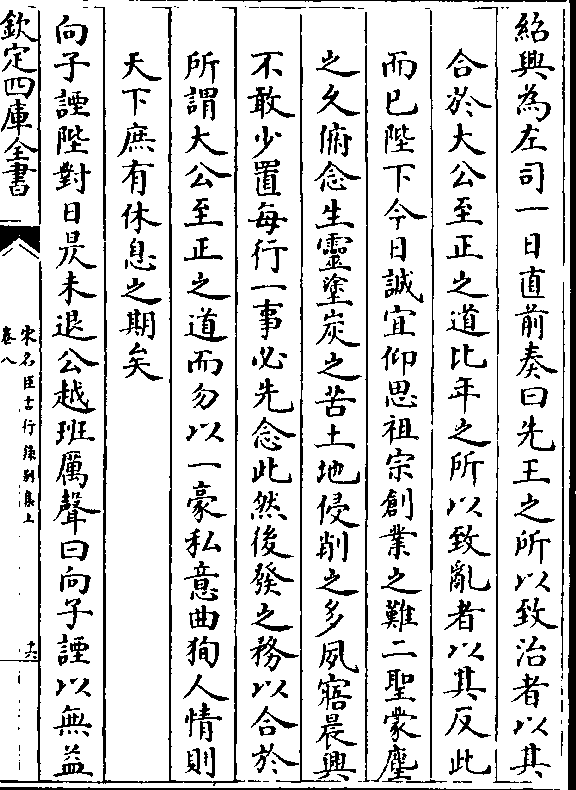 紹興為左司一日直前奏曰先王之所以致治者以其
合於大公至正之道比年之所以致亂者以其反此
而已陛下今日誠宜仰思祖宗創業之難二聖蒙塵
之久俯念生靈塗炭之苦土地侵削之多夙寤晨興
不敢少置每行一事必先念此然後發之務以合於
所謂大公至正之道而勿以一豪私意曲狥人情則
天下庶有休息之期矣
向子諲陛對日昃未退公越班厲聲曰向子諲以無益
欽定四庫全書
宋名臣言行録别集上
卷八
十六